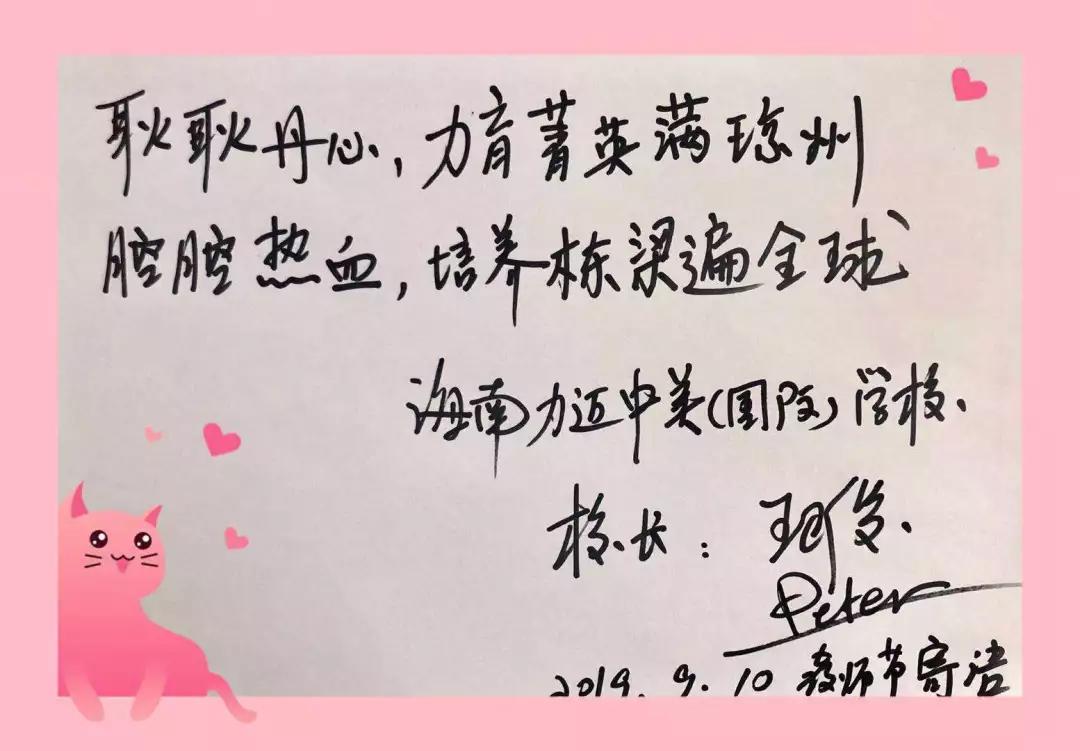 耿耿丹心，力育菁英满琼州
腔腔热血，培养栋梁遍全球
海南力迈中美(国际)学校.
校长：珂俊.
Peter
2019.9.10 教师节寄语